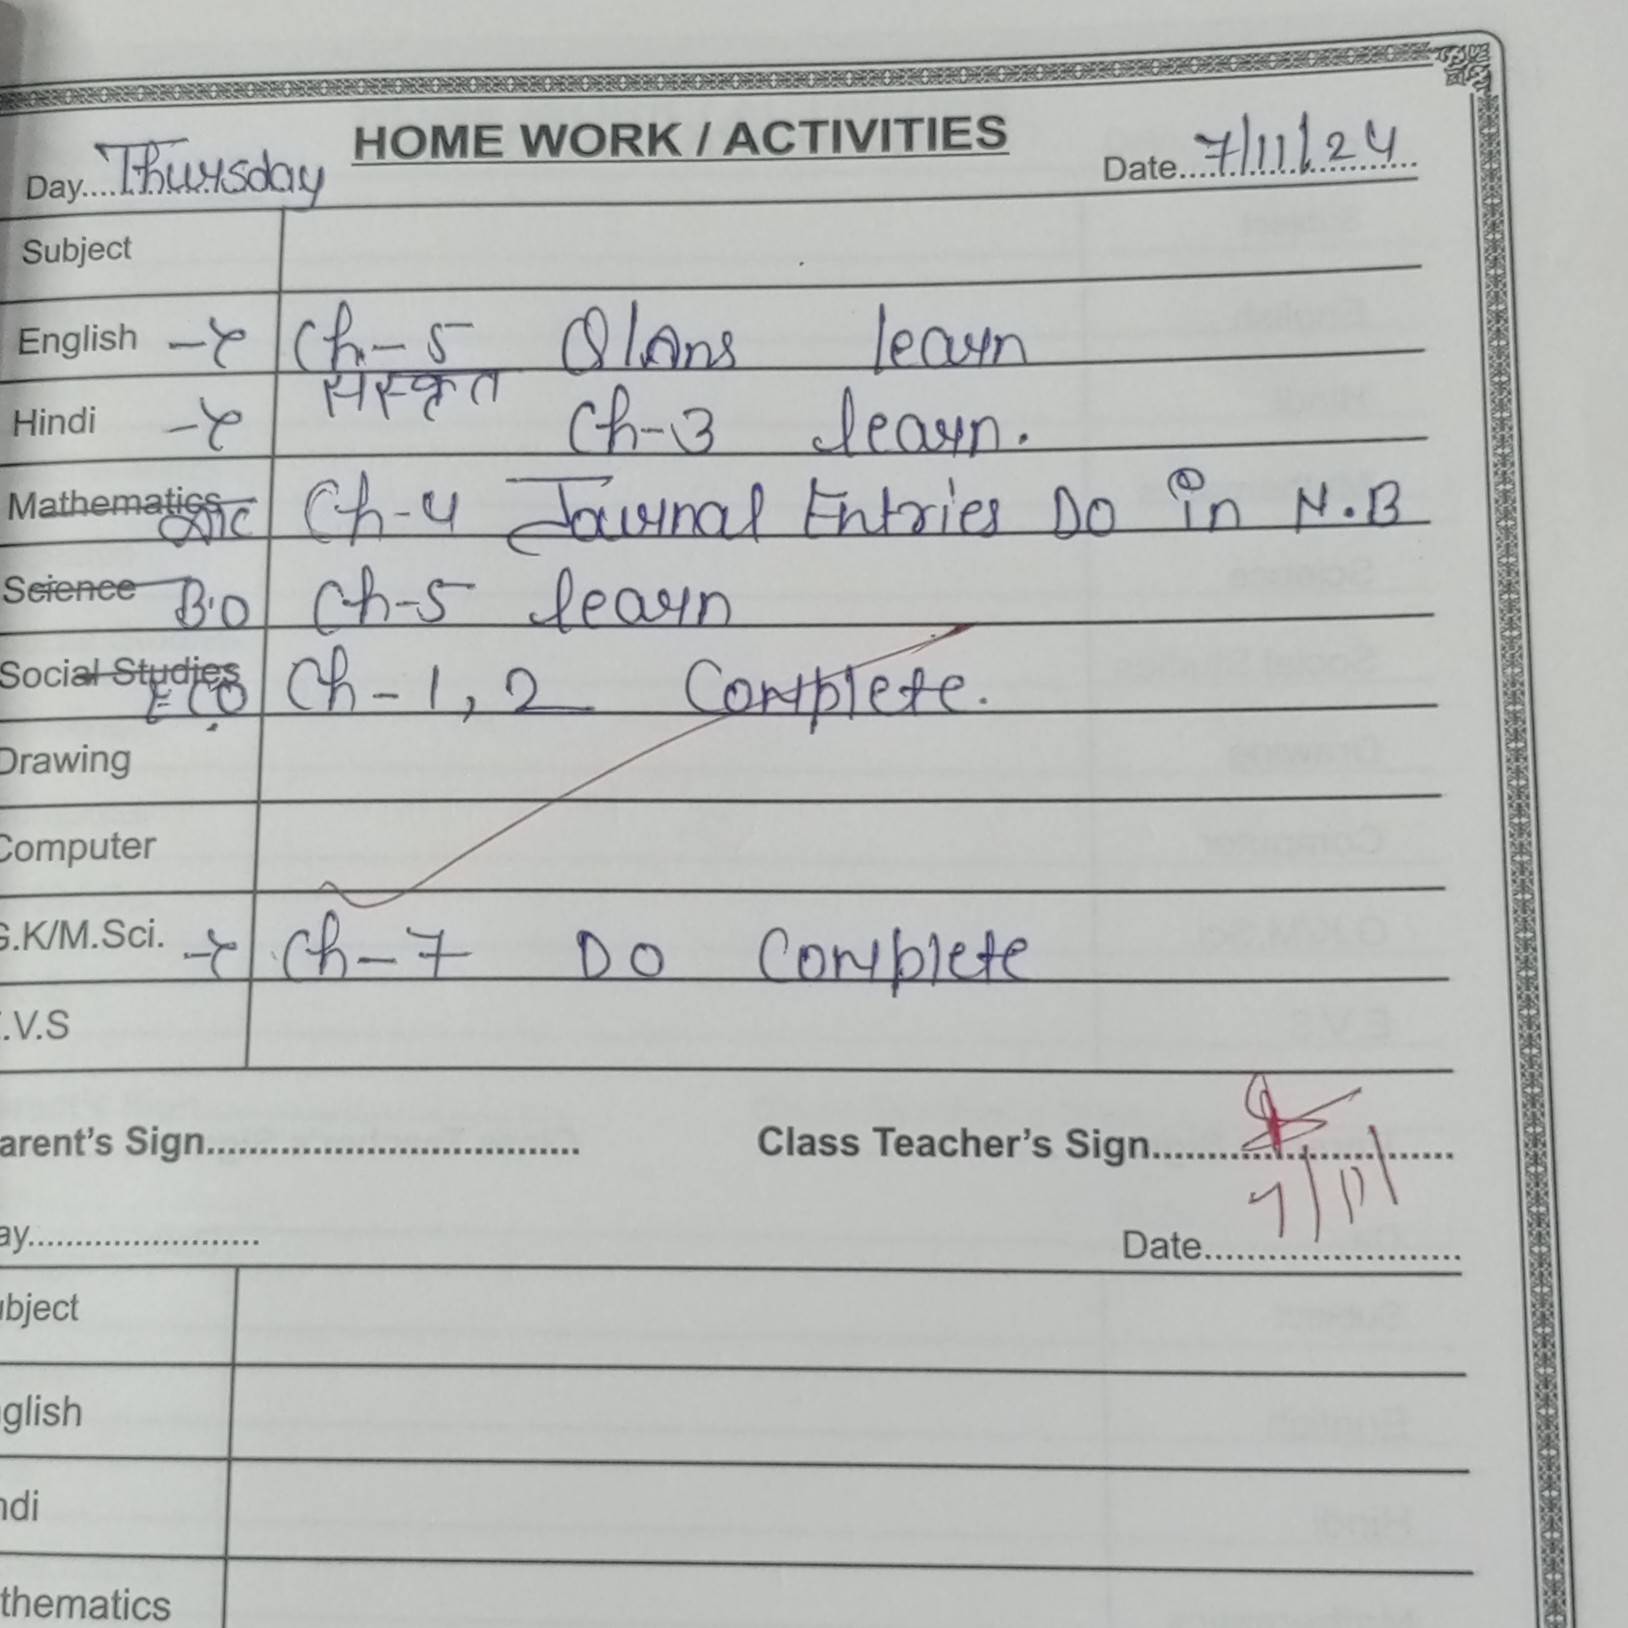 HOME WORK / ACTIVITIES
Day....Thursday Date....7/11/24
Subject
English → Ch-5 Q/Ans learn
Hindi → संस्कृत Ch-3 learn.
Mathematics A/C Ch-4 Journal Entries Do in N.B
Science B.O Ch-5 learn
Social Studies ECO Ch-1, 2 Complete.
Drawing
Computer
G.K/M.Sci. → Ch-7 Do Complete
.V.S
arent's Sign................................ Class Teacher's Sign............................
7/11/
ay........................ Date........................
ubject
glish
ndi
thematics